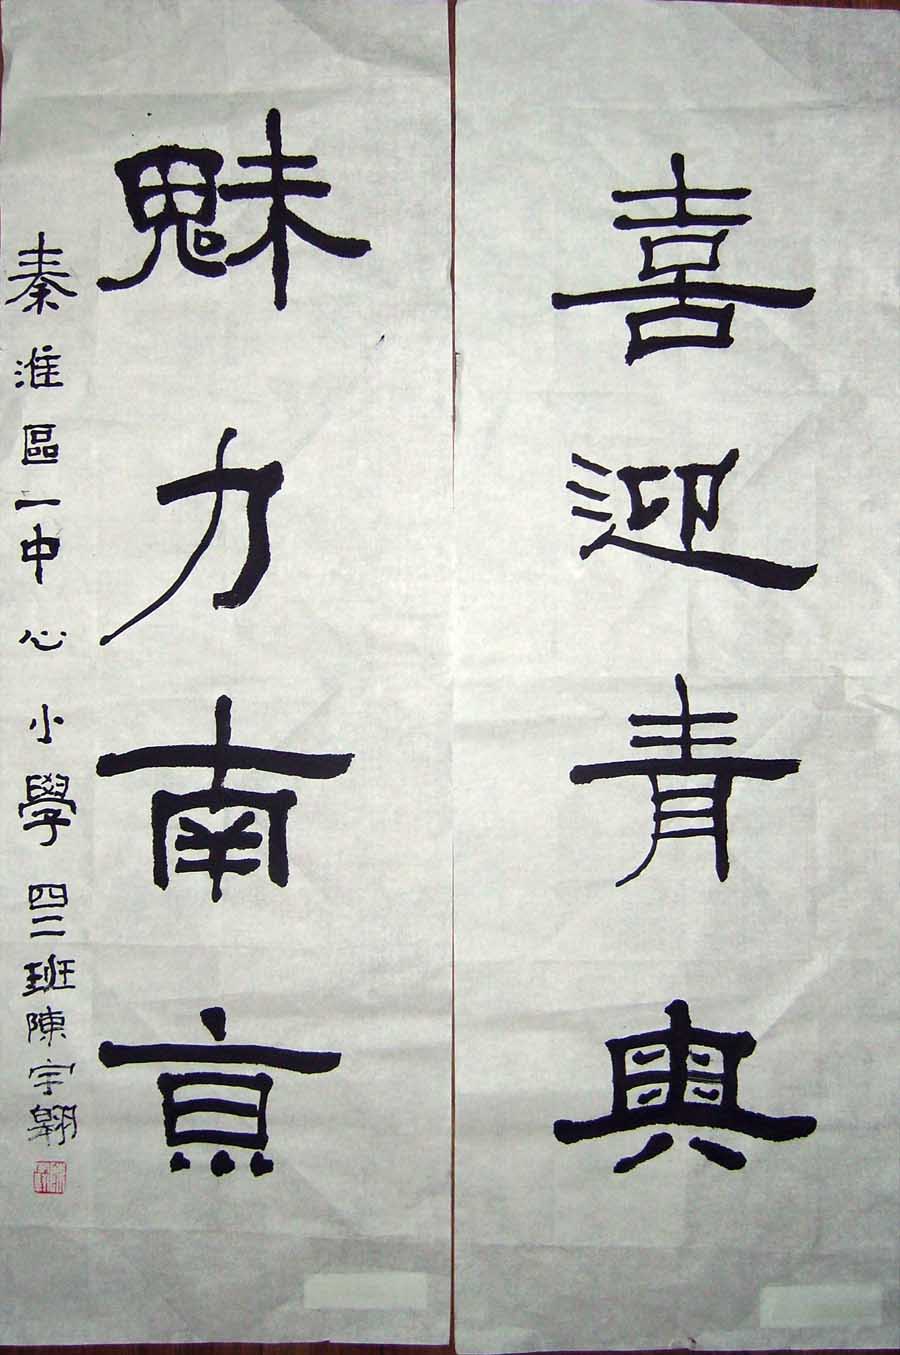 喜迎青奥
魅力南亰
秦淮區一中心小學四二班陳宇翱